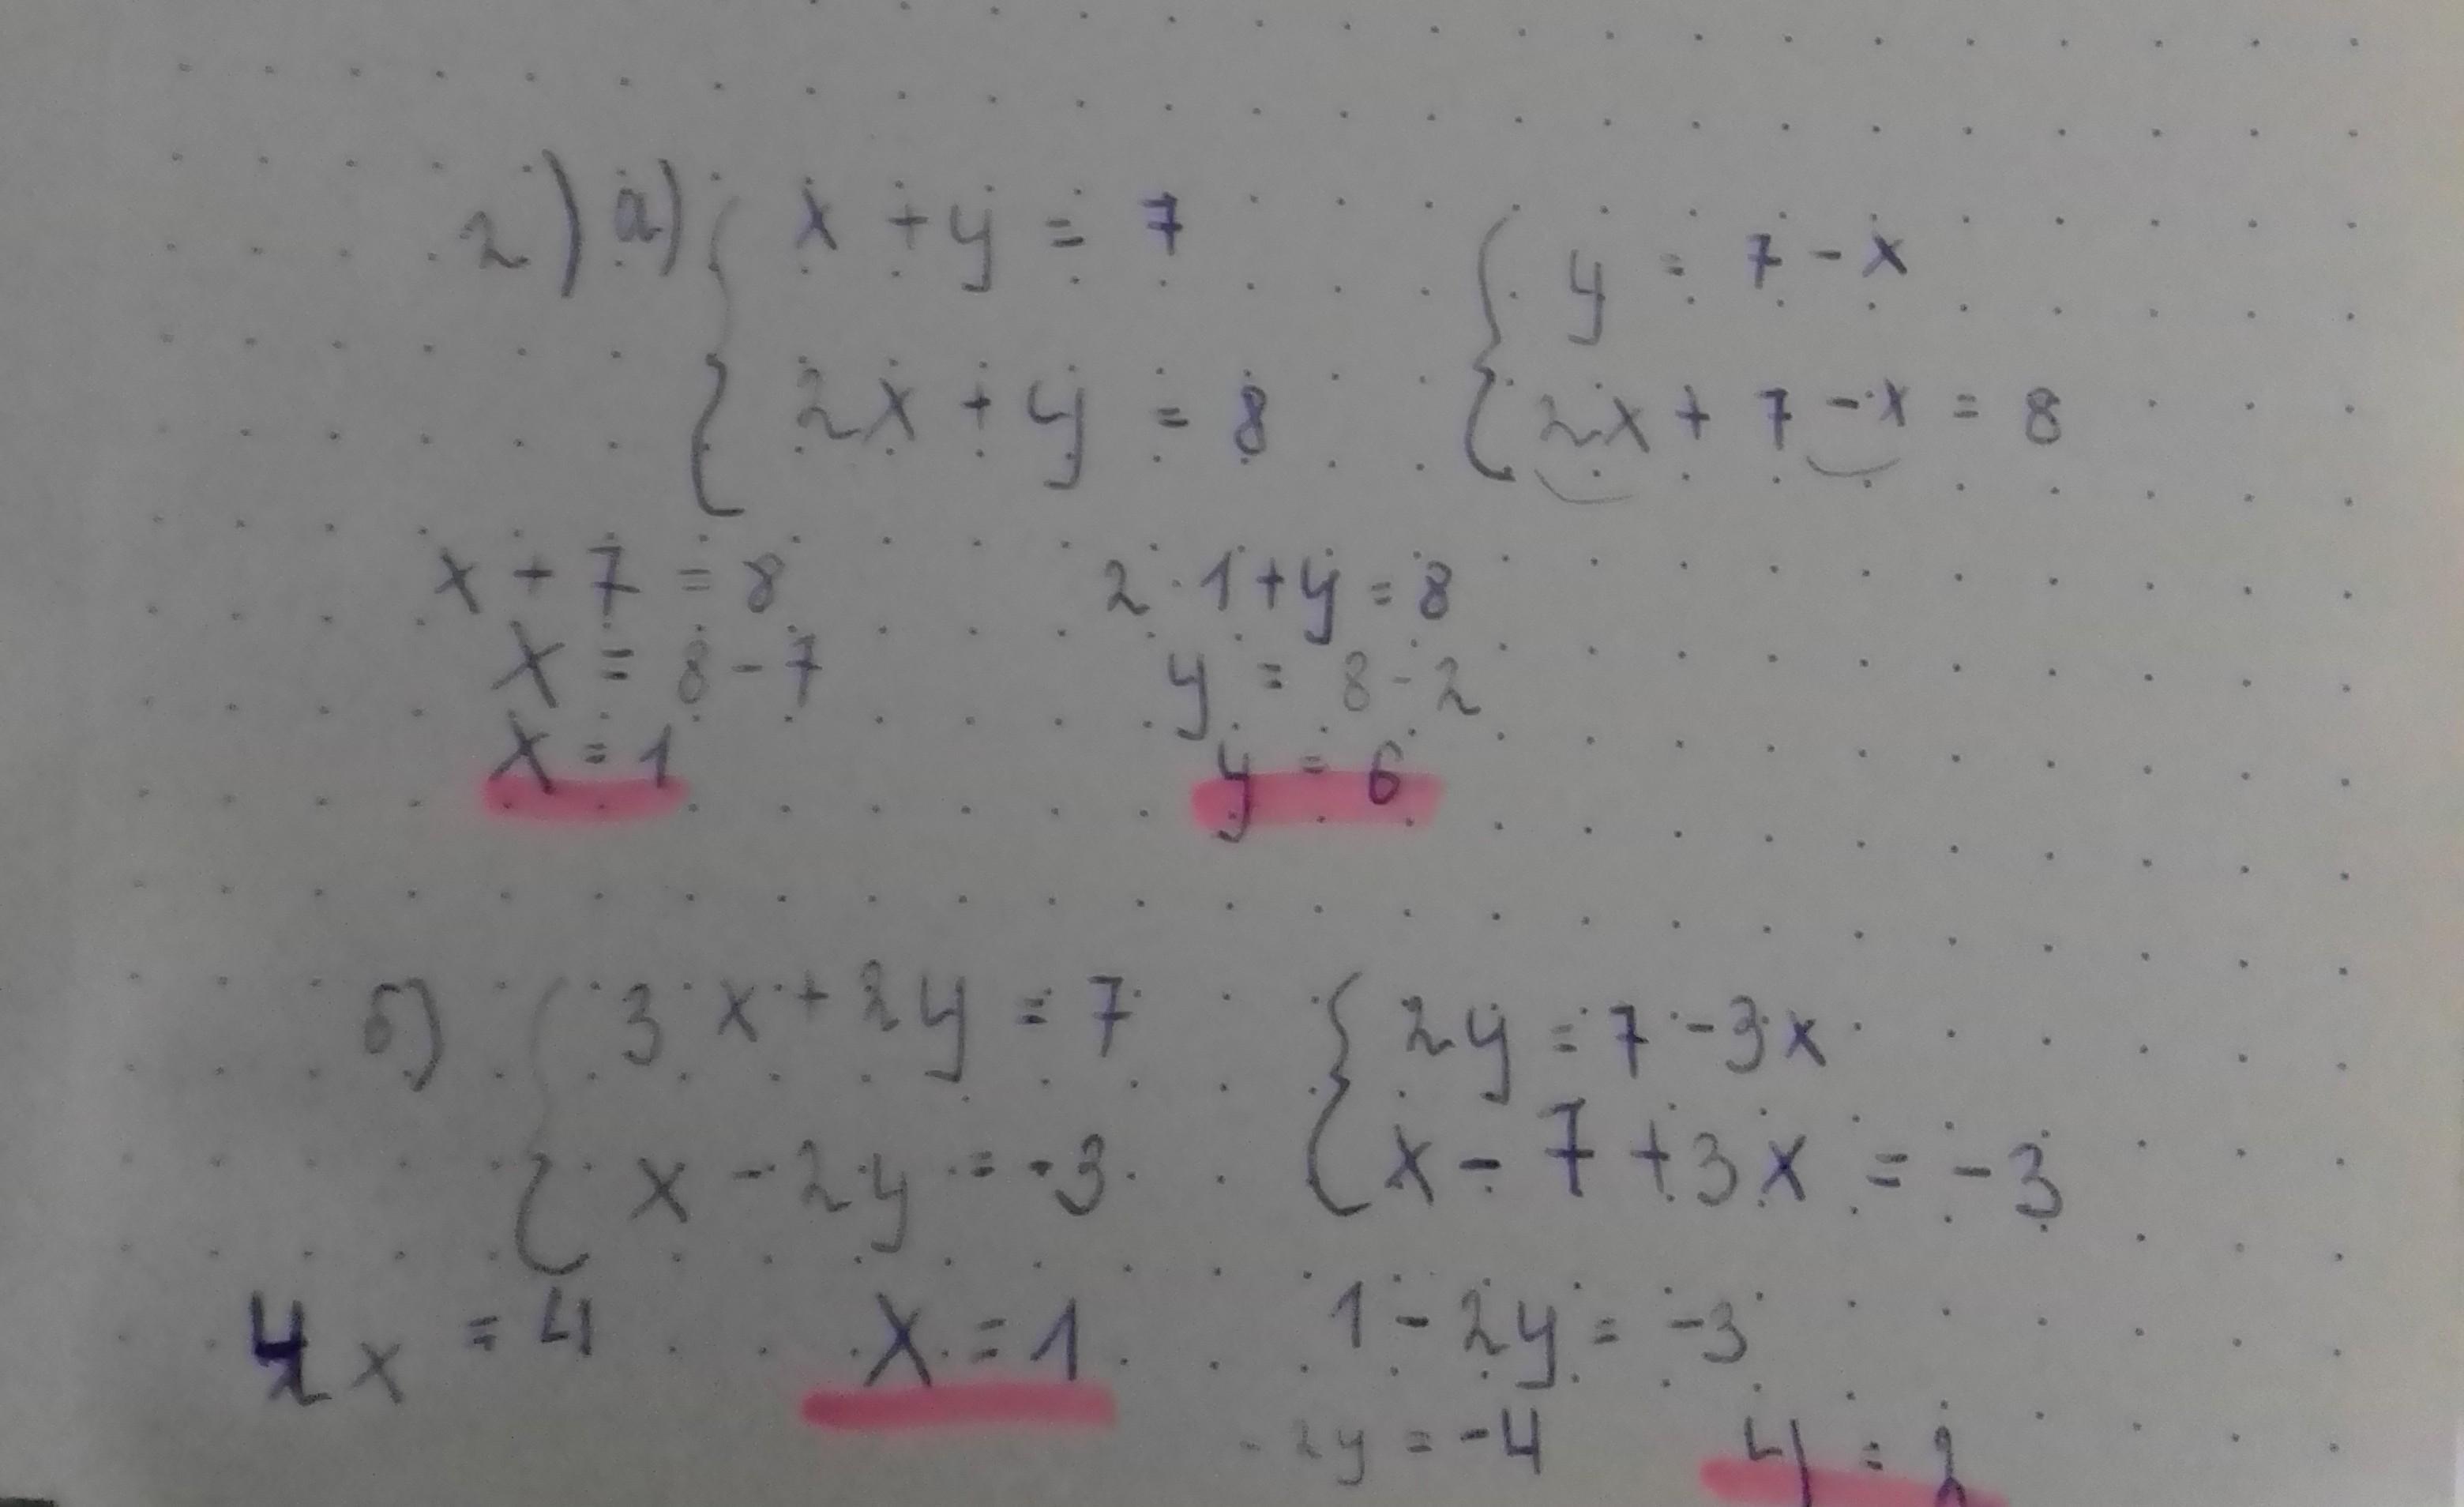 2) а) { x + y = 7
2x + y = 8
{ y = 7 - x
2x + 7 - x = 8
x + 7 = 8
x = 8 - 7
x = 1
2 · 1 + y = 8
y = 8 - 2
y = 6
б) { 3x + 2y = 7
x - 2y = -3
{ 2y = 7 - 3x
x - 7 + 3x = -3
4x = 4
x = 1
1 - 2y = -3
-2y = -4
y = 2